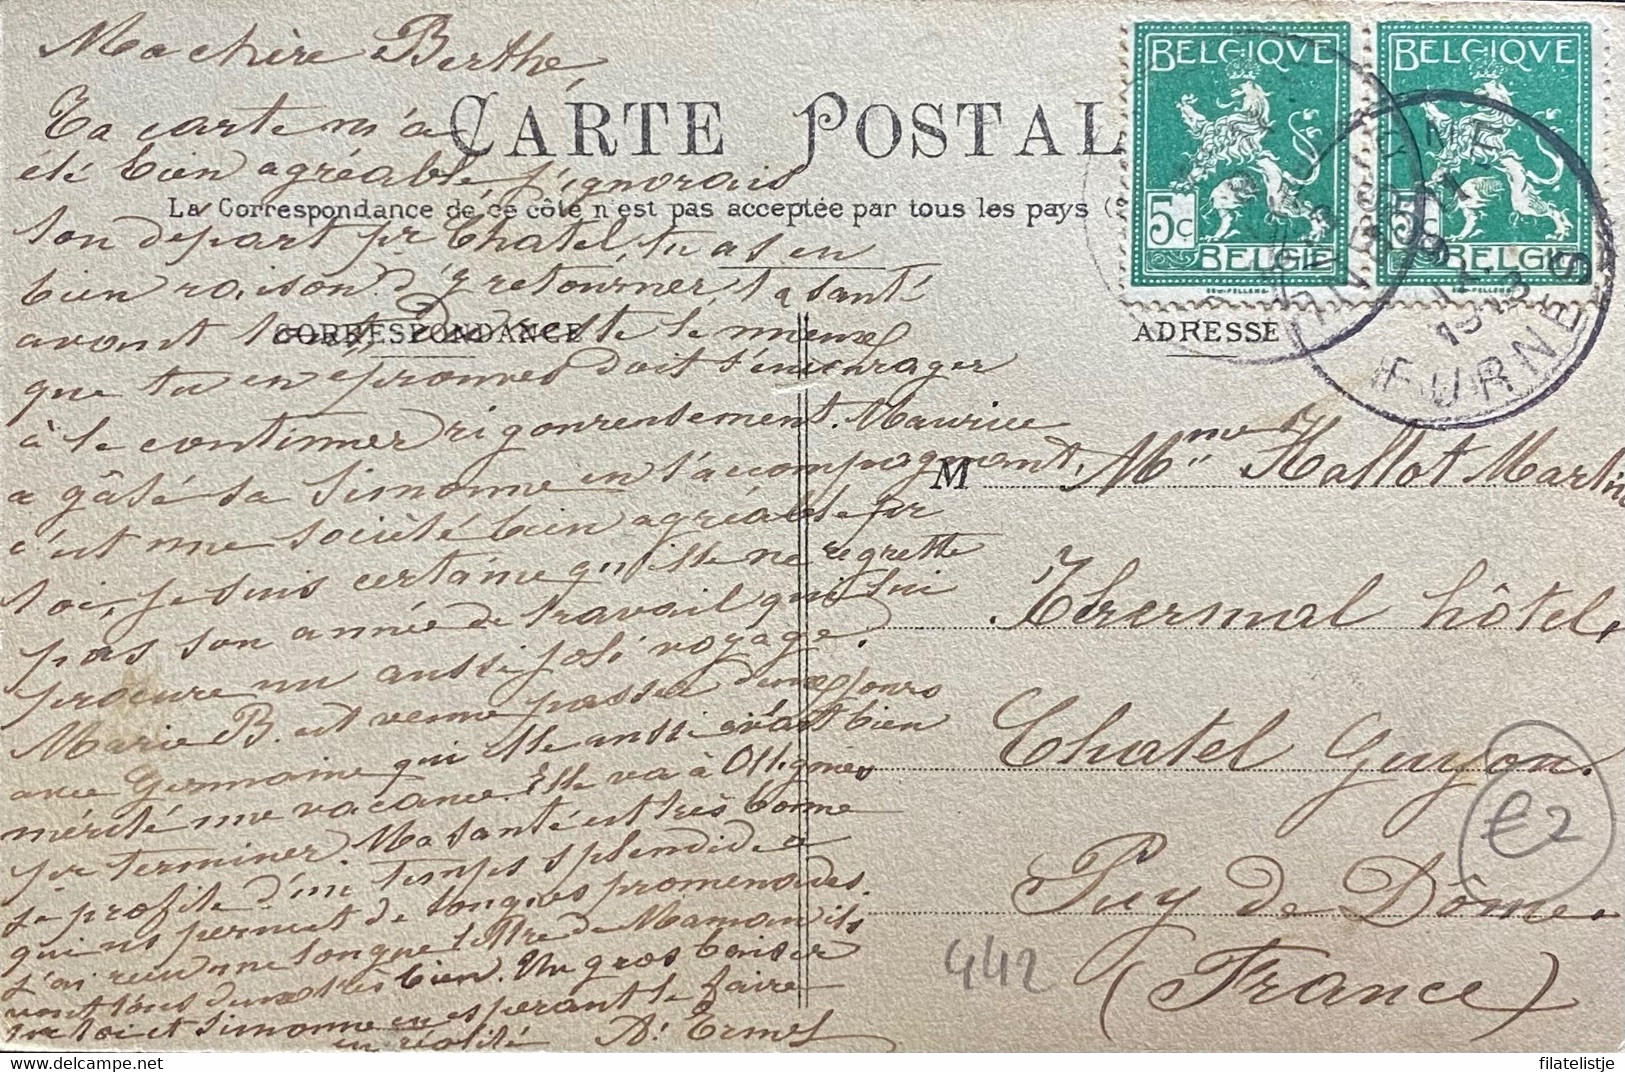 Ma chère Berthe,
CARTE POSTAL
Ta carte m'a
été bien agréable, j'ignorais
La Correspondance de ce côté n'est pas acceptée par tous les pays (
ton départ pr Chatel, tu as eu
bien raison d'y retourner, ta santé
avant tout. Le mieux
CORRESPONDANCE
que tu en éprouves doit t'encourager
à le continuer rigoureusement. Maurice
a gâté sa Simonne en t'accompagnant,
c'est une société bien agréable pr
toi, je suis certaine qu'elle ne regrette
pas son année de travail qui lui
procure un aussi joli voyage.
Marie B. est venue passer deux jours
avec Germaine qui elle aussi avait bien
mérité une vacance. Elle va à Ottignies
pr terminer. Ma santé est très bonne
je profite d'un temps splendide
qui ns permet de longues promenades.
J'ai reçu une longue lettre de Maman, ils
vont tous deux très bien. Un gros baiser
à toi et Simonne en espérant le faire
en réalité
BELGIQUE
5c
BELGIË
BELGIQUE
5c
BELGIË
VEURNE
1913
FURNES
ADRESSE
M Mme Hallot Martin
Thermal hôtel
Chatel Guyon
Puy de Dôme
(France)
€2
442
filatelistje